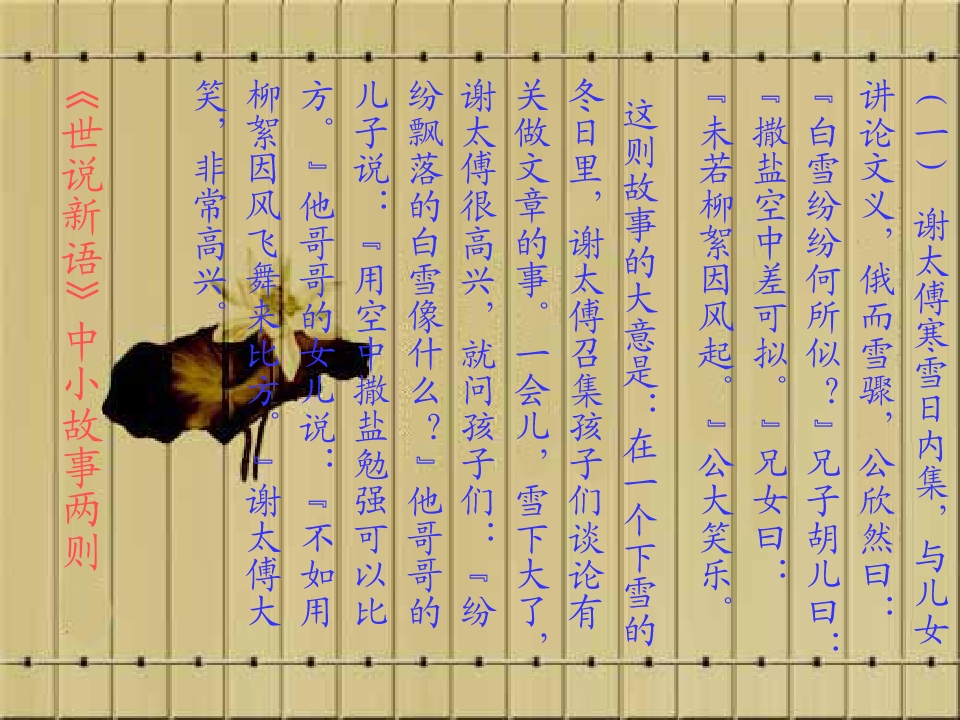 （一） 谢太傅寒雪日内集，与儿女
讲论文义，俄而雪骤，公欣然曰：
『白雪纷纷何所似？』兄子胡儿曰：
『撒盐空中差可拟。』兄女曰：
『未若柳絮因风起。』公大笑乐。
这则故事的大意是：在一个下雪的
冬日里，谢太傅召集孩子们谈论有
关做文章的事。一会儿，雪下大了，
谢太傅很高兴，就问孩子们：『纷
纷飘落的白雪像什么？』他哥哥的
儿子说：『用空中撒盐勉强可以比
方。』他哥哥的女儿说：『不如用
柳絮因风飞舞来比方。』谢太傅大
笑，非常高兴。
《世说新语》中小故事两则